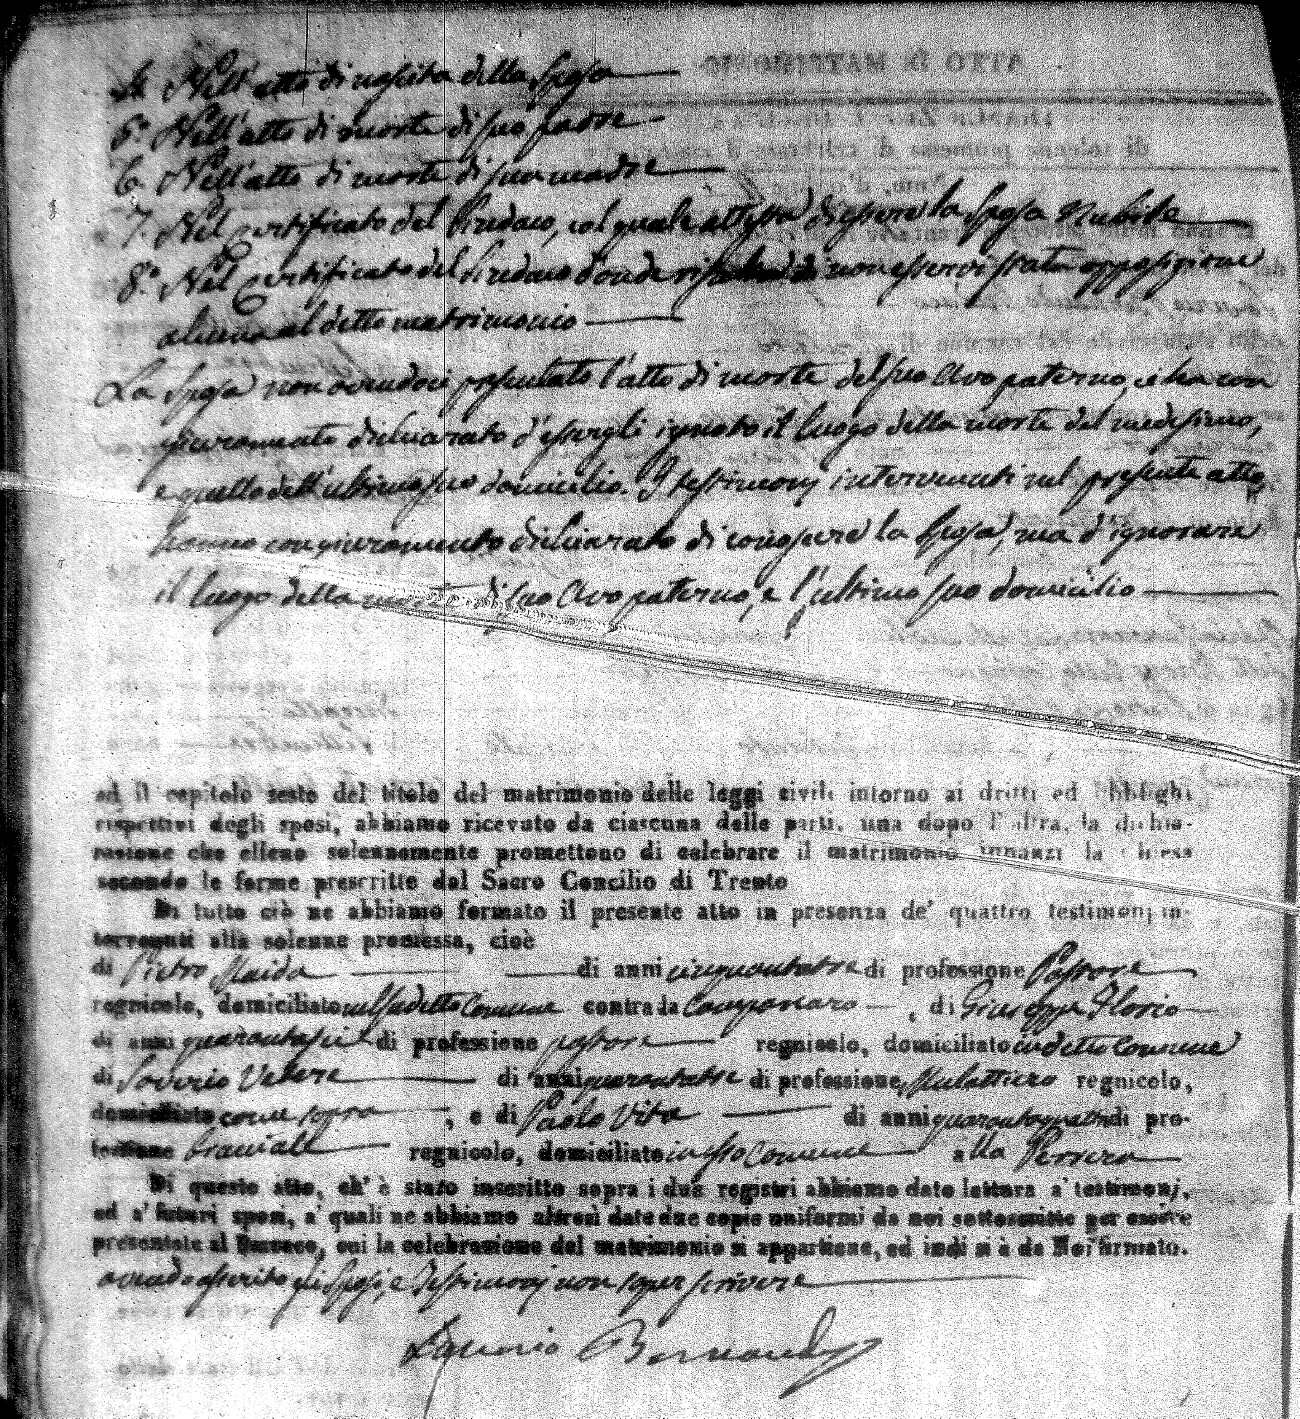 4. Nell'atto di nascita della Sposa
5.° Nell'atto di morte di suo padre
6. Nell'atto di morte di sua madre
7. Nel Certificato del Sindaco, col quale attesta di essere la Sposa Nubile
8.° Nel Certificato del Sindaco d'onde risulta di non esservi stata opposizione
alcuna al detto matrimonio
La Sposa non avendoci presentato l'atto di morte del suo Avo paterno, ci ha con
giuramento dichiarato d'essergli ignoto il luogo della morte del medesimo,
e quello dell'ultimo suo domicilio. I testimonj intervenuti nel presente atto
hanno con giuramento dichiarato di conoscere la Sposa, ma d'ignorare
il luogo della morte di suo Avo paterno, e l'ultimo suo domicilio
ed il capitolo sesto del titolo del matrimonio delle leggi civili intorno ai dritti ed obblighi
rispettivi degli sposi, abbiamo ricevuto da ciascuna delle parti, una dopo l'altra, la dichia-
razione che elleno solennemente promettono di celebrare il matrimonio innanzi la chiesa
secondo le forme prescritte dal Sacro Concilio di Trento
Di tutto ciò ne abbiamo formato il presente atto in presenza de' quattro testimonj in-
tervenuti alla solenne promessa, cioè
di Pietro Maida di anni cinquantatre di professione Pastore
regnicolo, domiciliato nel sudetto Comune contrada Campanaro, di Giuseppe Florio
di anni quarantasei di professione pastore regnicolo, domiciliato in detto Comune
di Saverio Veltre di anni quarantatre di professione Mulattiero regnicolo,
domiciliato come sopra, e di Paolo Vita di anni quarantaquattro di pro-
fessione bracciale regnicolo, domiciliato in esso Comune alla
Di questo atto, ch' è stato inscritto sopra i due registri abbiamo dato lettura a' testimonj,
ed a' futuri sposi, a' quali ne abbiamo altresì date due copie uniformi da noi sottoscritte per essere
presentate al Parroco, cui la celebrazione del matrimonio si appartiene, ed indi si è da Noi firmato.
avendo asserito gli Sposi, e Testimonj non saper scrivere